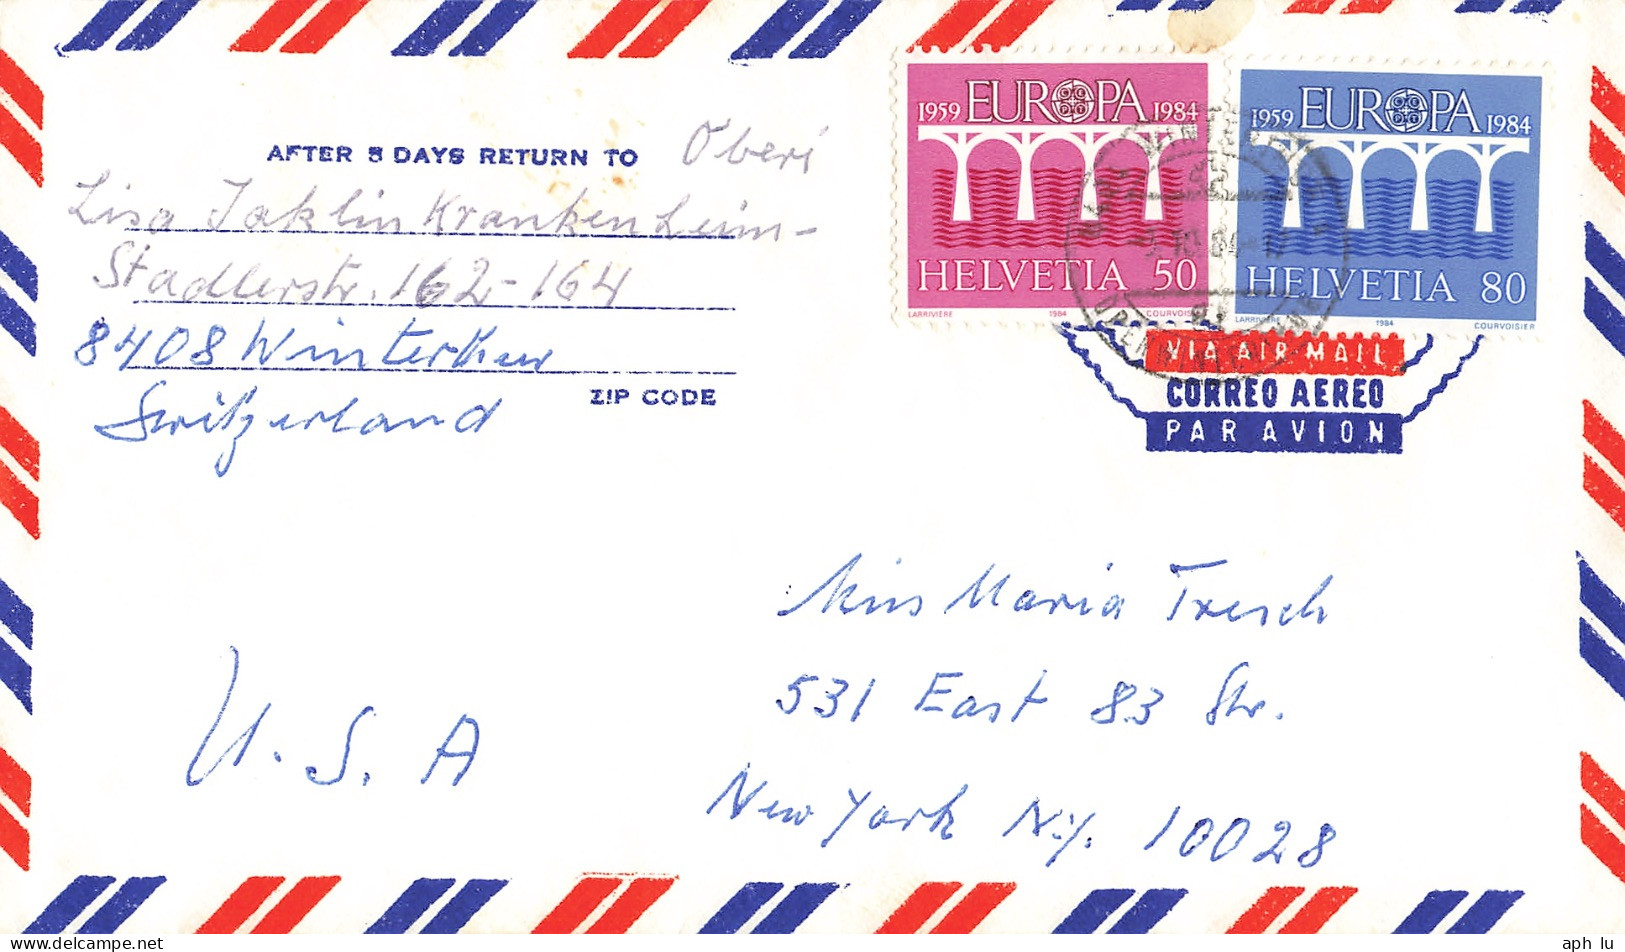 AFTER 5 DAYS RETURN TO Oberi
Lisa Jaklin Krankenheim-
Stadlerstr. 162-164
8408 Winterthur
ZIP CODE
Switzerland
1959 EUROPA 1984
HELVETIA 50
LARRIVIÈRE 1984 COURVOISIER
1959 EUROPA 1984
HELVETIA 80
LARRIVIÈRE 1984 COURVOISIER
VIA AIR MAIL
CORREO AEREO
PAR AVION
Miss Maria Tresch
531 East 83 Str.
New York N.Y. 10028
U.S.A
aph_lu